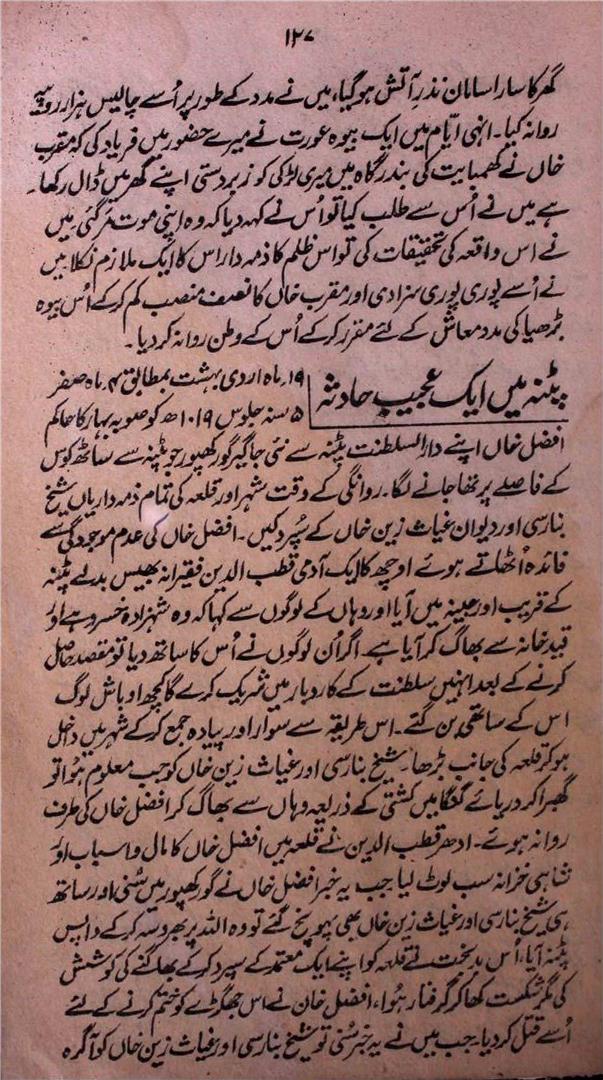 ۱۲۷
گھر کا سارا سامان نذرِ آتش ہو گیا، میں نے مدد کے طور پر اُسے چالیس ہزار روپیہ
روانہ کیا۔ انہی ایّام میں ایک بیوہ عورت نے میرے حضور میں فریاد کی کہ مقرب
خاں نے کھمبایت کی بندرگاہ میں میری لڑکی کو زبردستی اپنے گھر میں ڈال رکھا۔
ہے میں نے اُس سے طلب کیا تو اُس نے کہہ دیا کہ وہ اپنی موت مر گئی، میں
نے اس واقعہ کی تحقیقات کی تو اس ظلم کا ذمہ دار اس کا ایک ملازم نکلا میں
نے اُسے پوری پوری سزا دی اور مقرب خاں کا نصف منصب کم کر کے اُس بیوہ
بڑھیا کی مدد معاش کے لئے مقرر کر کے اُس کے وطن روانہ کر دیا۔
پٹنہ میں ایک عجیب حادثہ
۱۹۔ ماہ اردی بہشت بمطابق ۴۔ ماہ صفر
۵ سنہ جلوس ۱۰۱۹ھ کو صوبہ بہار کا حاکم
افضل خاں اپنے دارالسلطنت پٹنہ سے نئی جاگیر گورکھپور جو پٹنہ سے ساٹھ کوس
کے فاصلے پر تھا جانے لگا۔ روانگی کے وقت شہر اور قلعہ کی تمام ذمہ داریاں شیخ
بنارسی اور دیوان غیاث زین خاں کے سپرد کیں۔ افضل خاں کی عدم موجودگی سے
فائدہ اُٹھاتے ہوئے اوچھ کا ایک آدمی قطب الدین فقیرانہ بھیس بدلے پٹنہ
کے قریب اورجینہ میں آیا اور وہاں کے لوگوں سے کہا کہ وہ شہزادہ خسرو ہے اور
قید خانہ سے بھاگ کر آیا ہے۔ اگر اُن لوگوں نے اُس کا ساتھ دیا تو مقصد حاصل
کرنے کے بعد انہیں سلطنت کے کاروبار میں شریک کرے گا کچھ اوباش لوگ
اس کے ساتھی بن گئے۔ اس طریقہ سے سوار اور پیادہ جمع کر کے شہر میں داخل
ہو کر قلعہ کی جانب بڑھا۔ شیخ بنارسی اور غیاث زین خاں کو جب معلوم ہُوا تو
گھبرا کر دریائے گنگا میں کشتی کے ذریعہ وہاں سے بھاگ کر افضل خاں کی طرف
روانہ ہوئے۔ ادھر قطب الدین نے قلعہ میں افضل خاں کا مال و اسباب اور
شاہی خزانہ سب لوٹ لیا جب یہ خبر افضل خاں نے گورکھپور میں سُنی اور ساتھ
ہی شیخ بنارسی اور غیاث زین خاں بھی پہونچ گئے تو وہ اللہ پر بھروسہ کر کے واپس
پٹنہ آیا، اُس بدبخت نے قلعہ کو اپنے ایک معتمد کے سپرد کر کے بھاگنے کی کوشش
کی مگر شکست کھا کر گرفتار ہُوا، افضل خان نے اس جھگڑے کو ختم کرنے کے لئے
اُسے قتل کر دیا۔ جب میں نے یہ خبر سُنی تو شیخ بنارسی اور غیاث زین خاں کو آگرہ